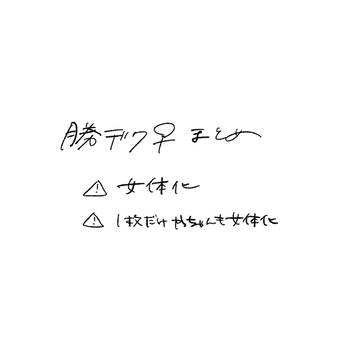 勝デク♀まとめ
⚠ 女体化
⚠ 1枚だけかっちゃんも女体化